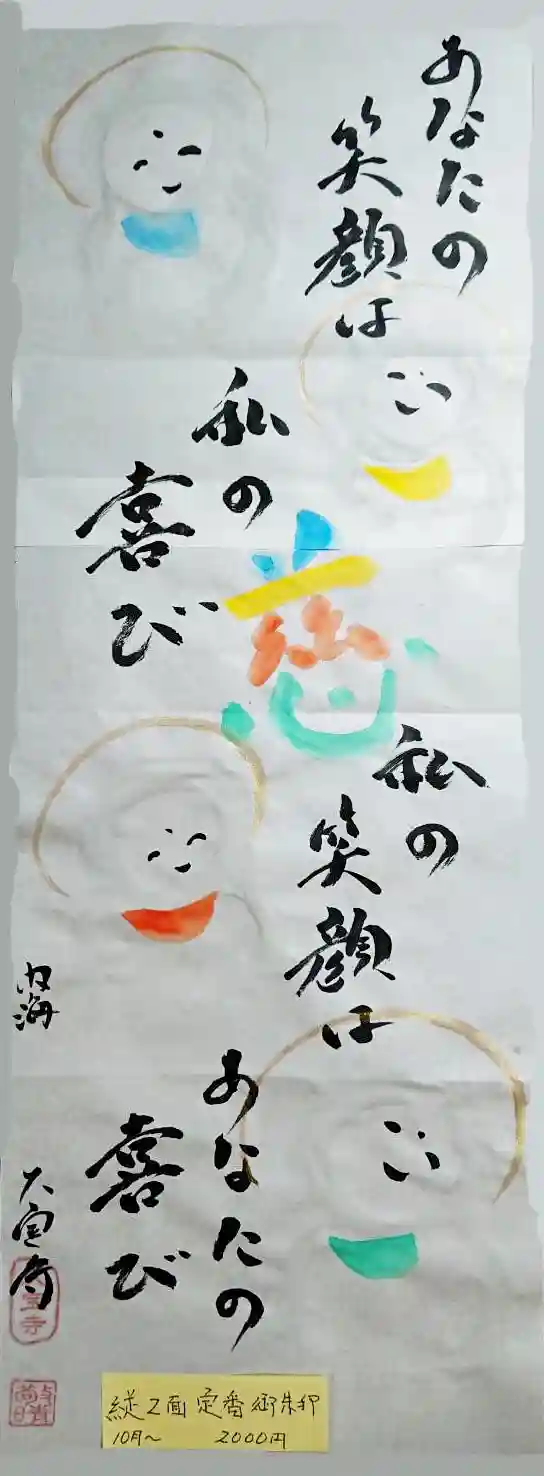 あなたの
笑顔は
私の
喜び
私の
笑顔は
あなたの
喜び
内海
大宝寺
縦2面 定番御朱印
10月～ 2000円